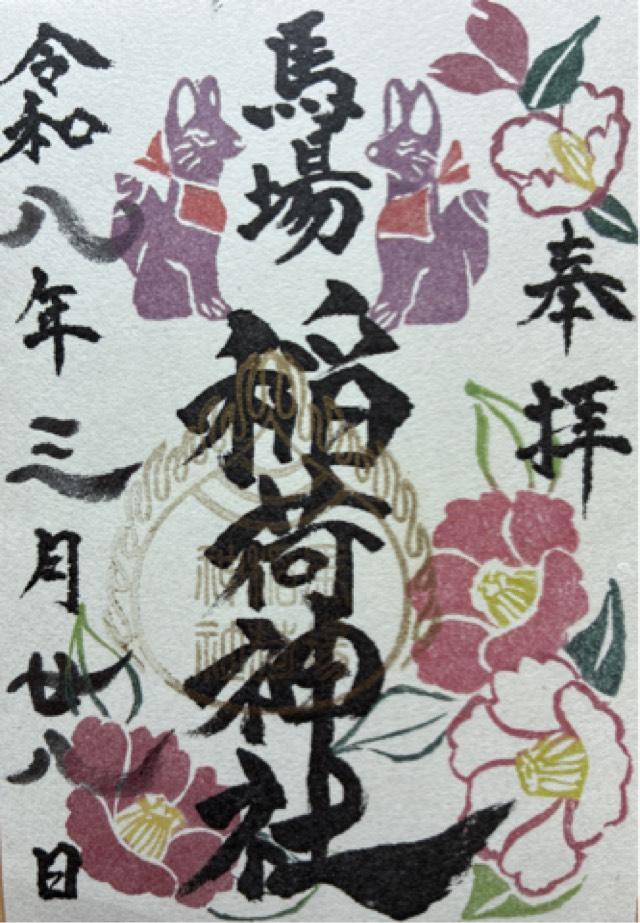 奉拝
馬場稲荷神社
令和八年三月廿八日